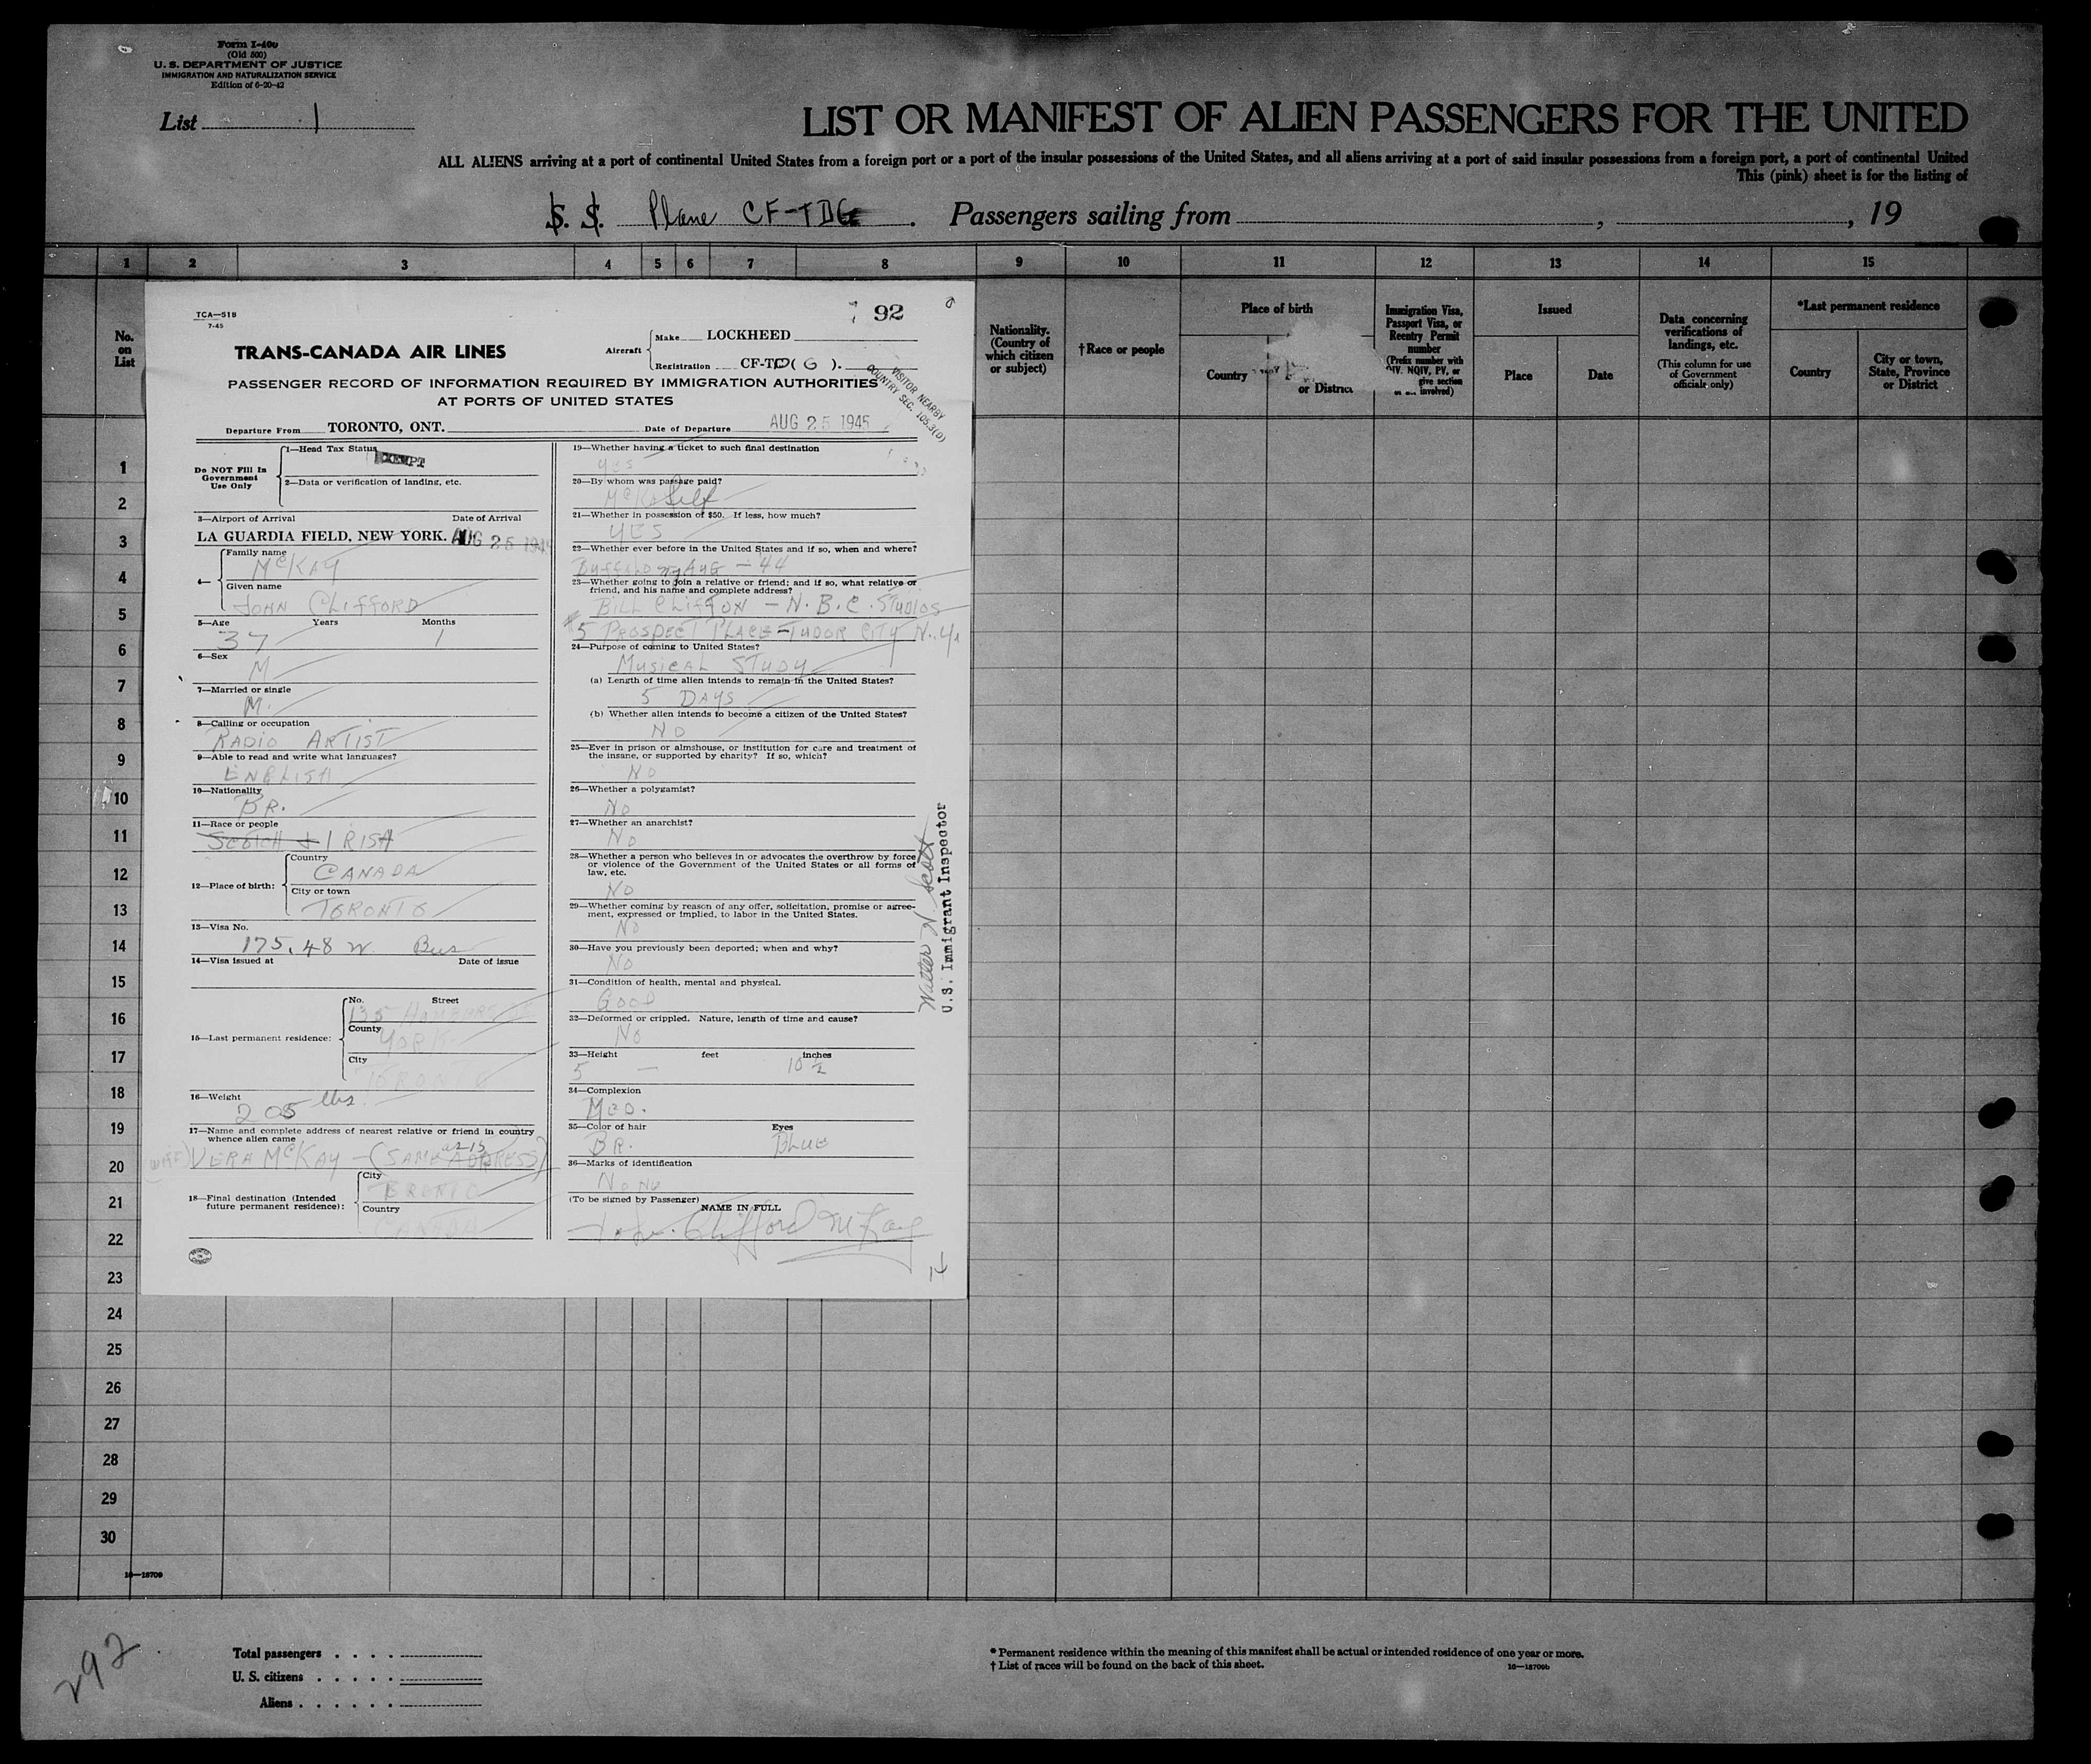 Form I-400
(Old 500)
U. S. DEPARTMENT OF JUSTICE
IMMIGRATION AND NATURALIZATION SERVICE
Edition of 6-20-42
List 1
LIST OR MANIFEST OF ALIEN PASSENGERS FOR THE UNITED
ALL ALIENS arriving at a port of continental United States from a foreign port or a port of the insular possessions of the United States, and all aliens arriving at a port of said insular possessions from a foreign port, a port of continental United
This (pink) sheet is for the listing of
S. S. Plane CF-TDG. Passengers sailing from , , 19
1 2 3 4 5 6 7 8 9 10 11 12 13 14 15
No. on List
Nationality. (Country of which citizen or subject)
†Race or people
Place of birth
Country
or District
Immigration Visa, Passport Visa, or Reentry Permit number
(Prefix number with QIV, NQIV, PV, or
give section
involved)
Issued
Place
Date
Data concerning verifications of landings, etc.
(This column for use of Government officials only)
*Last permanent residence
Country
City or town, State, Province or District
TCA—518
7-45
92
TRANS-CANADA AIR LINES
Aircraft
Make LOCKHEED
Registration CF-TD( G ).
VISITOR NEARBY
COUNTRY SEC. 105.3(D)
PASSENGER RECORD OF INFORMATION REQUIRED BY IMMIGRATION AUTHORITIES
AT PORTS OF UNITED STATES
Departure From TORONTO, ONT. Date of Departure AUG 25 1945
Do NOT Fill In
Government
Use Only
1—Head Tax Status EXEMPT
2—Data or verification of landing, etc.
3—Airport of Arrival Date of Arrival
LA GUARDIA FIELD, NEW YORK. AUG 25 194
4—
Family name
McKAY
Given name
JOHN CLIFFORD
5—Age Years Months
37 1
6—Sex
M
7—Married or single
M.
8—Calling or occupation
RADIO ARTIST
9—Able to read and write what languages?
ENGLISH
10—Nationality
BR.
11—Race or people
SCOTCH & IRISH
12—Place of birth:
Country
CANADA
City or town
TORONTO
13—Visa No.
175.48 W. Bus
14—Visa issued at Date of issue
15—Last permanent residence:
No. Street
135
County
YORK
City
TORONTO
16—Weight
205 lbs
17—Name and complete address of nearest relative or friend in country
whence alien came
(WIFE) VERA McKAY - (SAME as 15 ADDRESS)
18—Final destination (Intended
future permanent residence):
City
TORONTO
Country
CANADA
19—Whether having a ticket to such final destination
YES
20—By whom was passage paid?
McKA Self
21—Whether in possession of $50. If less, how much?
YES
22—Whether ever before in the United States and if so, when and where?
BUFFALO NY AUG - 44
23—Whether going to join a relative or friend; and if so, what relative or
friend, and his name and complete address?
BILL CLIFTON - N.B.C. STUDIOS
#5 PROSPECT PLACE - TUDOR CITY N.Y.
24—Purpose of coming to United States?
MUSICAL STUDY
(a) Length of time alien intends to remain in the United States?
5 DAYS
(b) Whether alien intends to become a citizen of the United States?
NO
25—Ever in prison or almshouse, or institution for care and treatment of
the insane, or supported by charity? If so, which?
NO
26—Whether a polygamist?
NO
27—Whether an anarchist?
NO
28—Whether a person who believes in or advocates the overthrow by force
or violence of the Government of the United States or all forms of
law, etc.
NO
29—Whether coming by reason of any offer, solicitation, promise or agree-
ment, expressed or implied, to labor in the United States.
NO
30—Have you previously been deported; when and why?
NO
31—Condition of health, mental and physical.
GOOD
32—Deformed or crippled. Nature, length of time and cause?
NO
33—Height feet inches
5 — 10 ½
34—Complexion
MED.
35—Color of hair Eyes
BR. BLUE
36—Marks of identification
NONE
(To be signed by Passenger)
NAME IN FULL
John Clifford McKay
Walter N Scott
U.S. Immigrant Inspector
1
2
3
4
5
6
7
8
9
10
11
12
13
14
15
16
17
18
19
20
21
22
23
24
25
26
27
28
29
30
16—18709
292
Total passengers
U. S. citizens
Aliens
* Permanent residence within the meaning of this manifest shall be actual or intended residence of one year or more.
† List of races will be found on the back of this sheet.
16—18709b